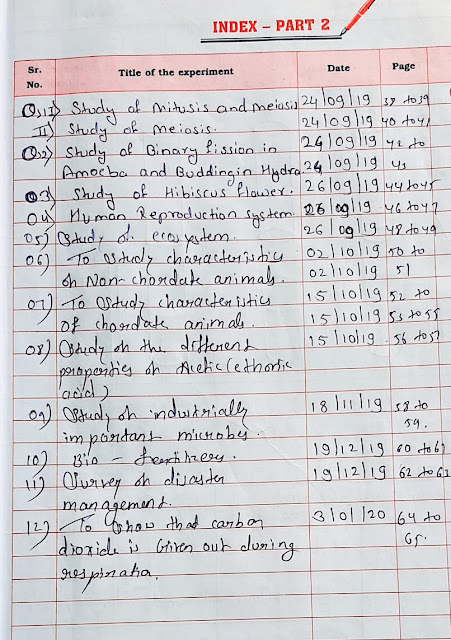 INDEX – PART 2
Sr. No. Title of the experiment Date Page
Q.1 I) Study of mitusis and meiosis 24/09/19 38 to 39
II) Study of meiosis. 24/09/19 40 to 41
Q.2) Study of Binary fission in 24/09/19 42 to
Amoeba and Budding in Hydra. 24/09/19 43
03) Study of Hibiscus flower. 26/09/19 44 to 45
04) Human Reproduction system. 26/09/19 46 to 47
05) Study of ecosystem. 26/09/19 48 to 49
06) To study characteristics 02/10/19 50 to
of Non-chordate animals. 02/10/19 51
07) To study characteristics 15/10/19 52 to
of chordate animals. 15/10/19 53 to 55
08) Study of the different 15/10/19 56 to 57
properties of Acetic (ethonic
acid)
09) Study of industrially 18/11/19 58 to
important microbes. 59.
10) Bio - fertilizers. 19/12/19 60 to 61
11) Survey of disaster 19/12/19 62 to 63
management.
12) To show that carbon 3/01/20 64 to
dioxide is Given out during 65.
respiration.